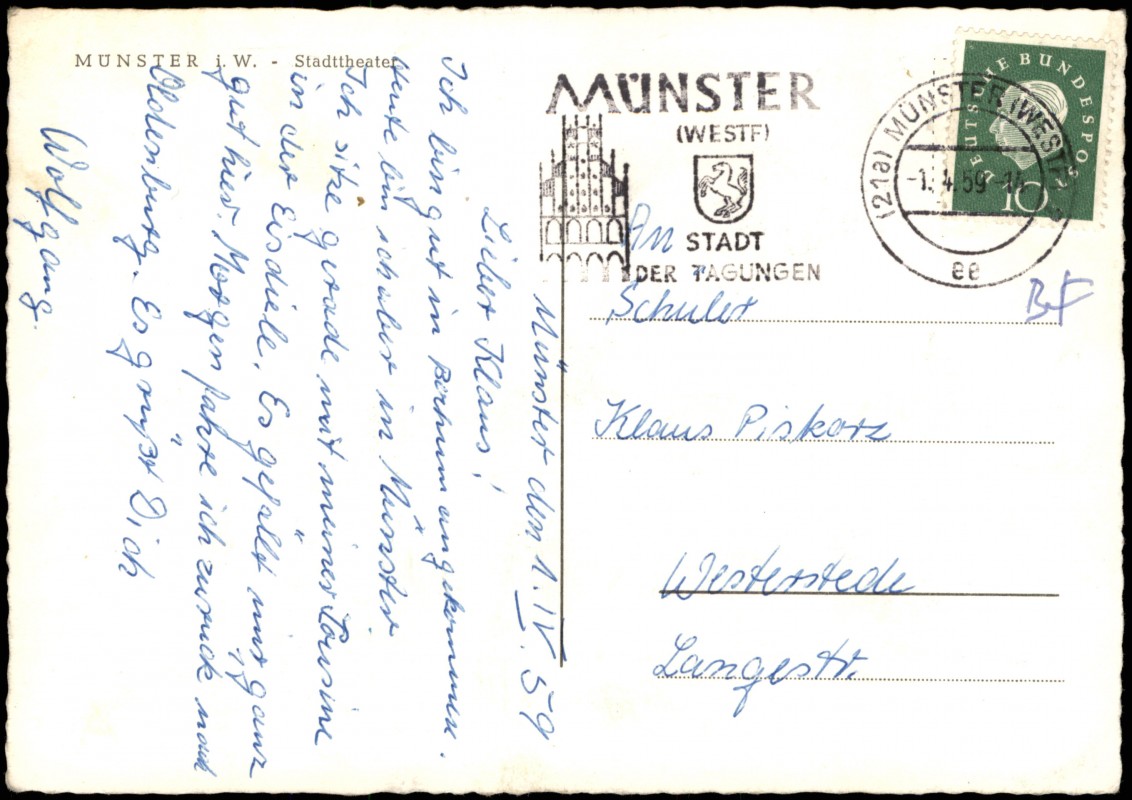 MÜNSTER i. W. - Stadttheater
Münster den 1. IV. 59
Lieber Klaus!
Ich bin gut in Bochum angekommen.
Heute bin ich aber in Münster
Ich sitze gerade mit meiner Cousine
in der Eisdiele. Es gefällt mir ganz
gut hier. Morgen fahre ich zurück nach
Oldenburg. Es grüßt Dich
Wolfgang.
MÜNSTER
(WESTF)
STADT
DER TAGUNGEN
(21a) MÜNSTER (WESTF)
-1. 4. 59-14
ee
DEUTSCHE BUNDESPOST
10
An
Schüler
Klaus Piskorz
Westerstede
Langestr.